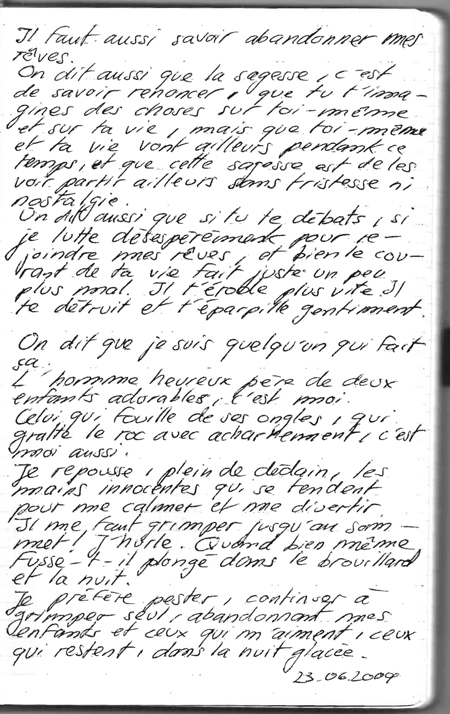 Il faut aussi savoir abandonner mes
rêves.
On dit aussi que la sagesse, c'est
de savoir renoncer, que tu t'ima-
gines des choses sur toi-même
et sur ta vie, mais que toi-même
et ta vie vont ailleurs pendant ce
temps, et que cette sagesse est de les
voir partir ailleurs sans tristesse ni
nostalgie.
On dit aussi que si tu te débats, si
je lutte désespérément pour re-
joindre mes rêves, et bien le cou-
rant de ta vie fait juste un peu
plus mal. Il t'érode plus vite. Il
te détruit et t'éparpille gentiment.
On dit que je suis quelqu'un qui fait
ça.
L'homme heureux père de deux
enfants adorables, c'est moi.
Celui qui fouille de ses ongles, qui
gratte le roc avec acharnement, c'est
moi aussi.
Je repousse, plein de dédain, les
mains innocentes qui se tendent
pour me calmer et me divertir.
Il me faut grimper jusqu'au som-
met! J'hurle. Quand bien même
fusse-t-il plongé dans le brouillard
et la nuit.
Je préfère pester, continuer à
grimper seul, abandonnant mes
enfants et ceux qui m'aiment, ceux
qui restent, dans la nuit glacée.
23.06.2009